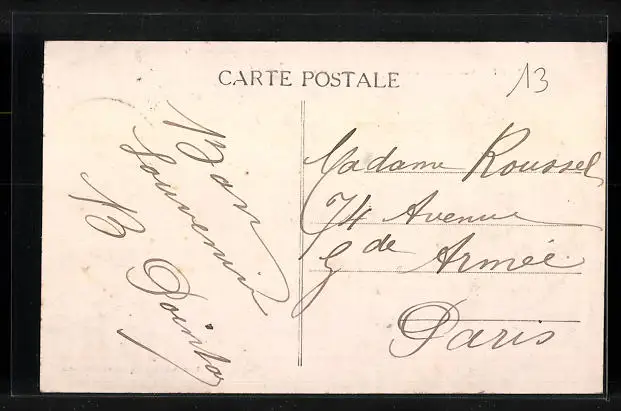 CARTE POSTALE
13
Bon
souvenir
B
Madame Roussel
74 Avenue
Gde Armée
Paris